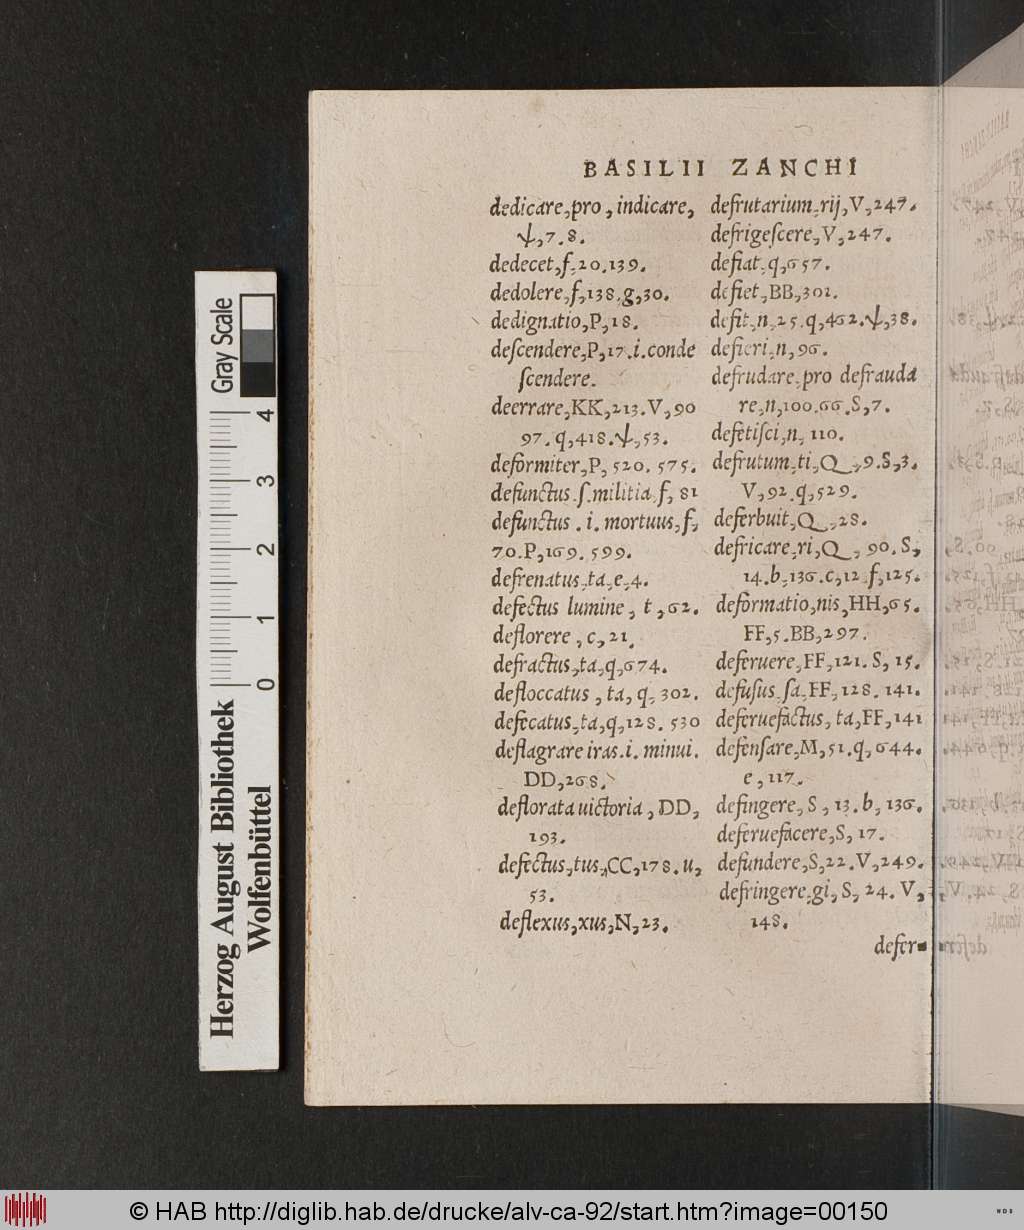 BASILII ZANCHI
dedicare,pro, indicare,
ψ,7.8.
dedecet,f,20.139.
dedolere,f,138.g,30.
dedignatio,P,18.
deſcendere,P,17.i.conde
ſcendere.
deerrare,KK,213.V,90
97.q,418.ψ,53.
deformiter,P, 520. 575.
defunctus.ſ.militia,f, 81
defunctus. i. mortuus,f,
70.P,169. 599.
defrenatus,ta,e,4.
defectus lumine, t,62.
deflorere, c,21.
defractus,ta,q,674.
defloccatus, ta, q, 302.
defecatus,ta,q,128. 530
deflagrare iras.i. minui.
DD,268.
deflorata uictoria, DD,
193.
defectus,tus,CC,178.u,
53.
deflexus,xus,N,23.
defrutarium,rij,V,247.
defrigeſcere,V,247.
defiat,q,657.
defiet,BB,301.
defit,n,25.q,462.ψ,38.
defieri,n,96.
defrudare,pro defrauda
re,n,100.66.S,7.
defetiſci,n, 110.
defrutum,ti,Q,9.S,3.
V,92.q,529.
deferbuit,Q,28.
defricare,ri,Q, 90. S,
14.b,136.c,12.f,125.
deformatio,nis,HH,65.
FF,5.BB,297.
deferuere,FF,121. S, 15.
defuſus,ſa,FF,128. 141.
deferuefactus, ta,FF,141
defenſare,M,51.q,644.
e,117.
defingere, S, 13.b, 136.
deferuefacere,S, 17.
defundere,S,22.V,249.
defringere,gi, S, 24. V,
148.
defer-
Gray Scale
0 1 2 3 4
Herzog August Bibliothek
Wolfenbüttel
© HAB http://diglib.hab.de/drucke/alv-ca-92/start.htm?image=00150